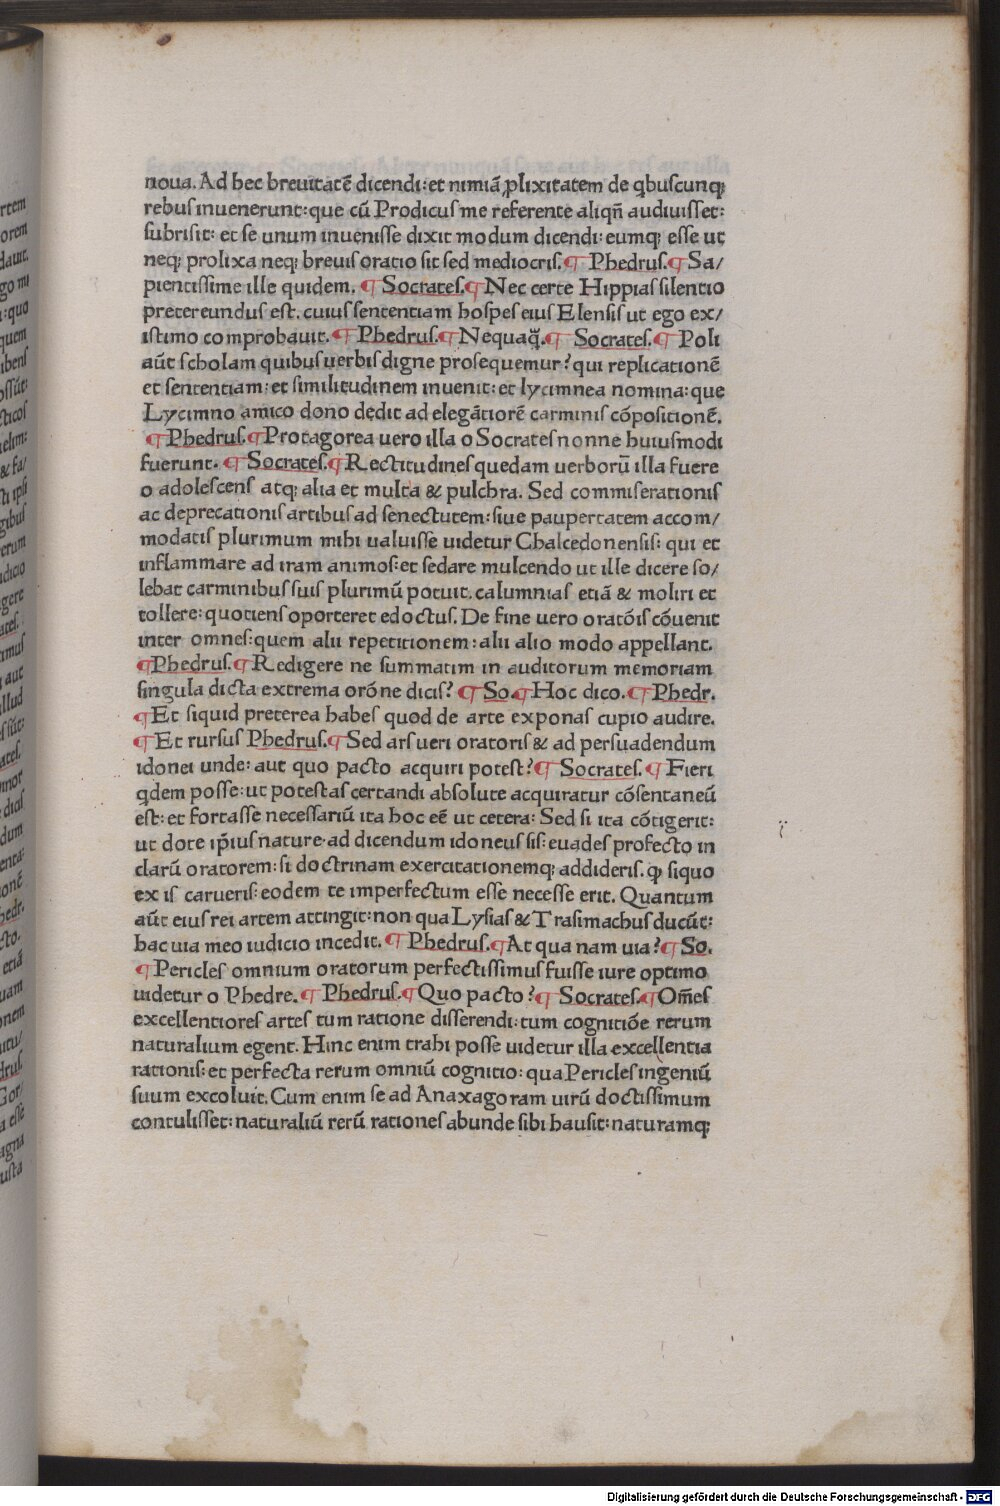 noua. Ad hec breuitatē dicendi: et nimiā ꝓlixitatem de qbuscunqꝫ
rebus inuenerunt: que cū Prodicus me referente aliqn̄ audiuisset:
subrisit: et se unum inuenisse dixit modum dicendi: eumqꝫ esse ut
neqꝫ prolixa neqꝫ breuis oratio sit sed mediocris. ¶ Phedrus. ¶ Sa/
pientissime ille quidem. ¶ Socrates. ¶ Nec certe Hippias silentio
pretereundus est. cuius sententiam hospes eius Elensis ut ego ex/
istimo comprobauit. ¶ Phedrus. ¶ Nequaq̄. ¶ Socrates. ¶ Poli
aūt scholam quibus uerbis digne prosequemur? qui replicationē
et sententiam: et similitudinem inuenit: et lycimnea nomina: que
Lycimno amico dono dedit ad elegātiorē carminis cōpositionē.
¶ Phedrus. ¶ Protagorea uero illa o Socrates nonne huiusmodi
fuerunt. ¶ Socrates. ¶ Rectitudines quedam uerborū illa fuere
o adolescens atqꝫ alia et multa & pulchra. Sed commiserationis
ac deprecationis artibus ad senectutem: siue paupertatem accom/
modatis plurimum mihi ualuisse uidetur Chalcedonensis: qui et
inflammare ad iram animos: et sedare mulcendo ut ille dicere so/
lebat carminibus suis plurimū potuit. calumnias etiā & moliri et
tollere: quotiens oporteret edoctus. De fine uero oratōis cōuenit
inter omnes: quem alii repetitionem: alii alio modo appellant.
¶ Phedrus. ¶ Redigere ne summatim in auditorum memoriam
singula dicta extrema orōne dicis? ¶ So. ¶ Hoc dico. ¶ Phedr.
¶ Et siquid preterea habes quod de arte exponas cupio audire.
¶ Et rursus Phedrus. ¶ Sed ars ueri oratoris & ad persuadendum
idonei unde: aut quo pacto acquiri potest? ¶ Socrates. ¶ Fieri
qdem posse: ut potestas certandi absolute acquiratur cōsentaneū
est: et fortasse necessariū ita hoc eē ut cetera: Sed si ita cōtigerit:
ut dote ip̄ius nature. ad dicendum idoneus sis: euades profecto in
clarū oratorem: si doctrinam exercitationemqꝫ addideris. ꝙ siquo
ex is carueris: eodem te imperfectum esse necesse erit. Quantum
aūt eius rei artem attingit: non qua Lysias & Trasimachus ducūt:
hac uia meo iudicio incedit. ¶ Phedrus. ¶ At qua nam uia? ¶ So.
¶ Pericles omnium oratorum perfectissimus fuisse iure optimo
uidetur o Phedre. ¶ Phedrus. ¶ Quo pacto? ¶ Socrates. ¶ Om̄es
excellentiores artes tum ratione disserendi: tum cognitiōe rerum
naturalium egent. Hinc enim trahi posse uidetur illa excellentia
rationis: et perfecta rerum omniū cognitio: qua Pericles ingeniū
suum excoluit. Cum enim se ad Anaxagoram uirū doctissimum
contulisset: naturaliū rerū rationes abunde sibi hausit: naturamqꝫ
Digitalisierung gefördert durch die Deutsche Forschungsgemeinschaft - DFG